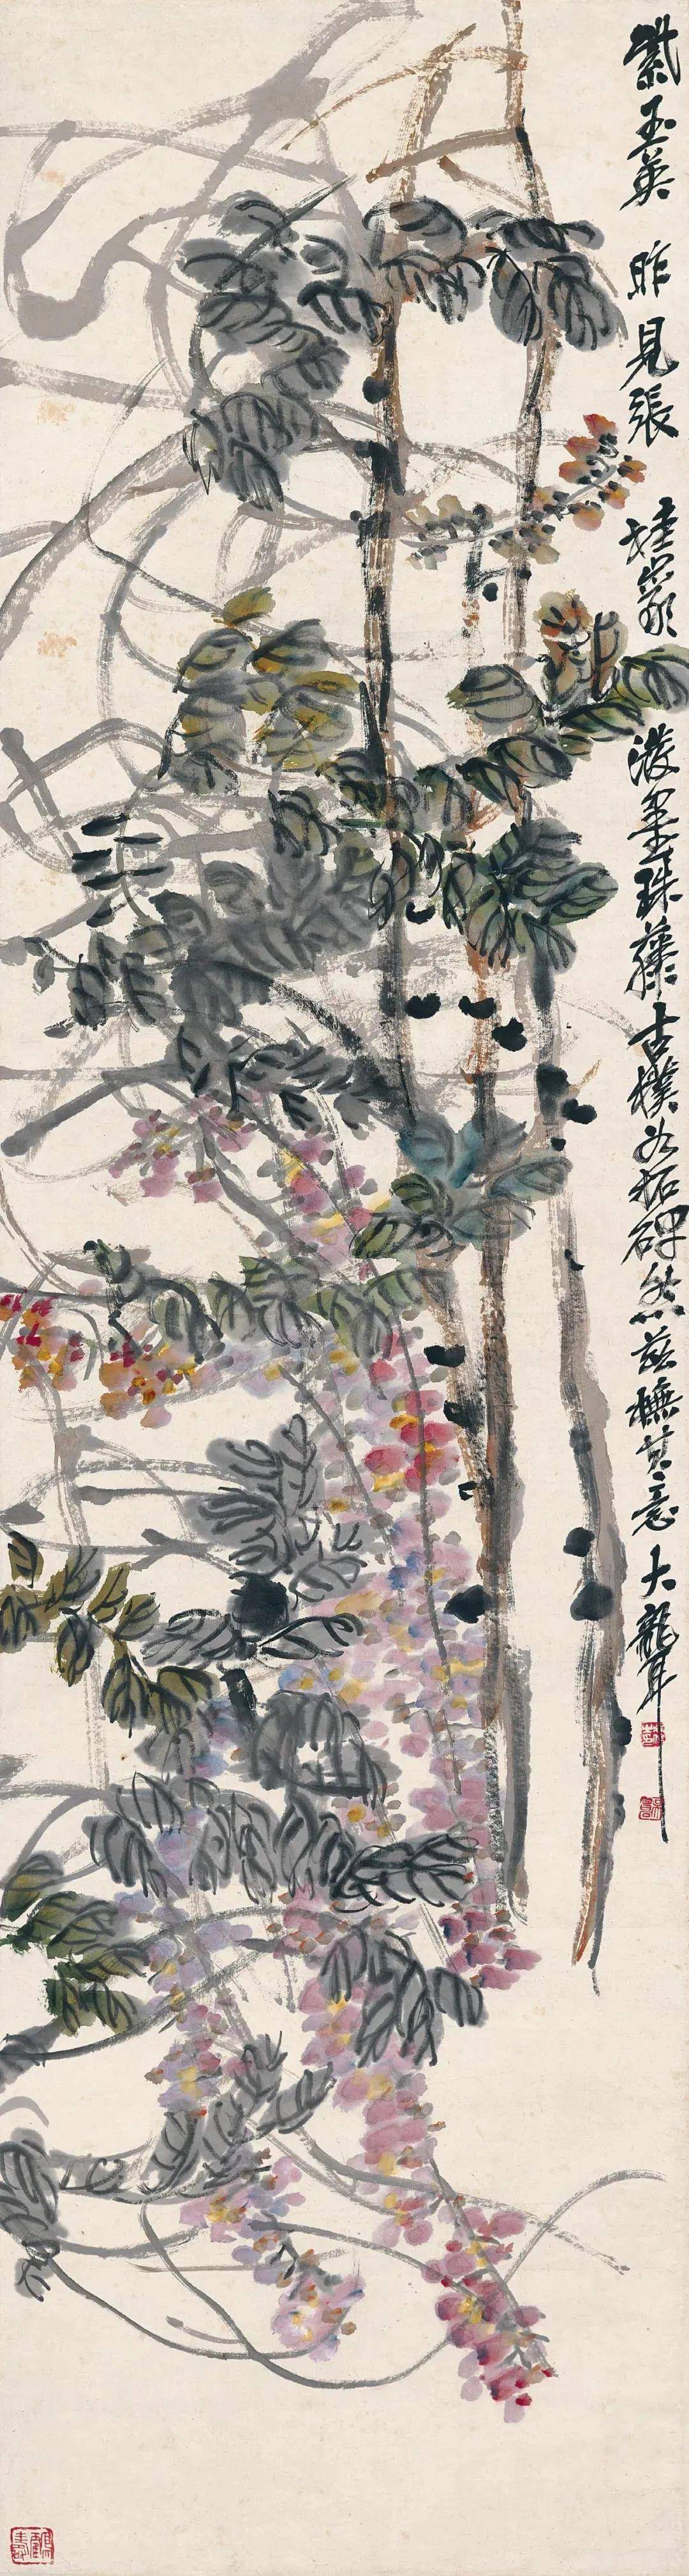 紫玉英 昨見張桂巖潑墨珠藤古樸如拓碑然茲橅其意 大聾